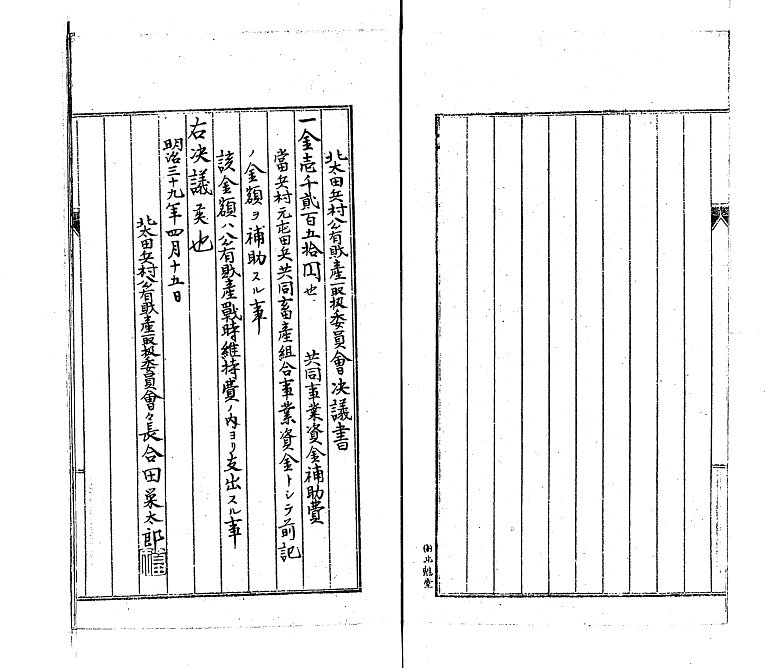 北太田兵村公有財產取扱委員會決議書
一金壱千貳百五拾円也 共同事業資金補助費
當兵村元屯田兵共同畜產組合事業資金トシテ前記
ノ金額ヲ補助スル事
該金額ハ公有財產戰時維持費ノ內ヨリ支出スル事
右決議候也
明治三十九年四月十五日
北太田兵村公有財產取扱委員會々長合田菓太郎